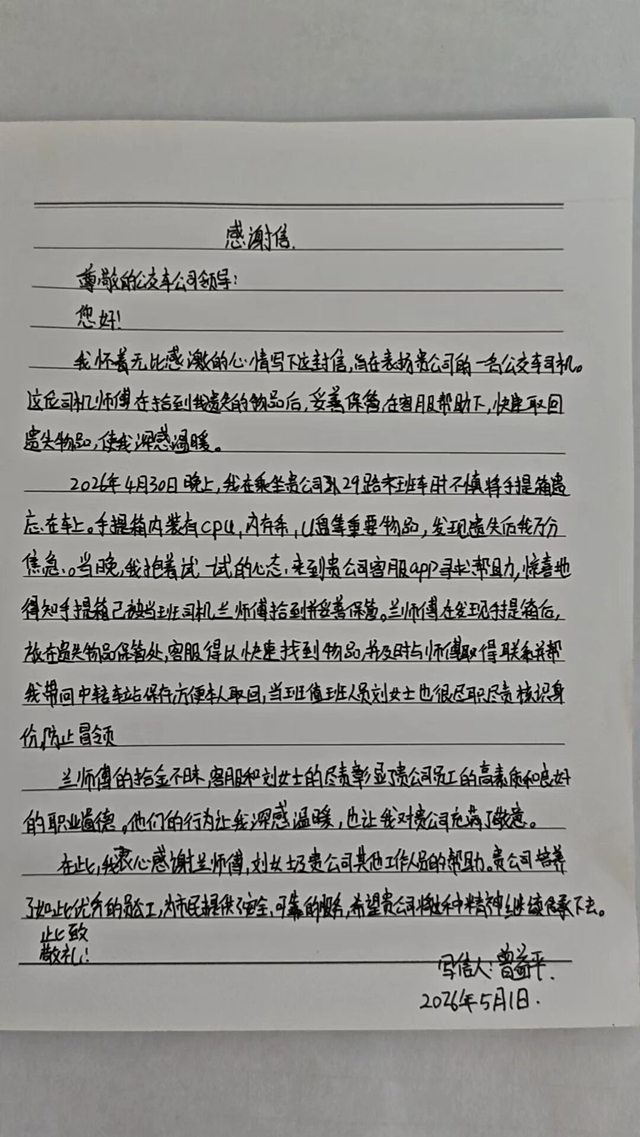 感谢信.
尊敬的公交车公司领导:
您好!
我怀着无比感激的心情写下这封信,旨在表扬贵公司的一名公交车司机。
这位司机师傅在拾到我遗失的物品后,妥善保管,在客服帮助下,快速取回
遗失物品,使我深感温暖。
2026年4月30日晚上,我在乘坐贵公司 29路末班车时不慎将手提箱遗
忘在车上。手提箱内装有cpu,内存条,U盘等重要物品,发现遗失后我万分
焦急。当晚,我抱着试一试的心态,来到贵公司客服app寻找帮助,惊喜地
得知手提箱已被当班司机兰师傅拾到并妥善保管。兰师傅在发现手提箱后,
放在遗失物品保管处,客服得以快速找到物品,并及时与师傅取得联系并帮
我带回中转车站保存方便本人取回,当班值班人员刘女士也很尽职尽责核识身
份,防止冒领
兰师傅的拾金不昧,客服和刘女士的尽责彰显了贵公司员工的高素质和良好
的职业道德。他们的行为让我深感温暖,也让我对贵公司充满了敬意。
在此,我衷心感谢兰师傅,刘女士及贵公司其他工作人员的帮助。贵公司培养
了如此优秀的员工,为市民提供了安全,可靠的服务,希望贵公司将这种精神继续传承下去。
此致
敬礼!
写信人:曾益平.
2026年5月1日.